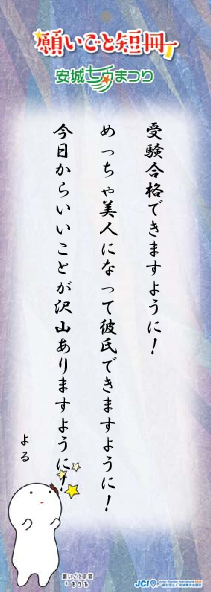 願いごと短冊
安城七夕まつり
受験合格できますように!
めっちゃ美人になって彼氏できますように!
今日からいいことが沢山ありますように!
よる
JCI